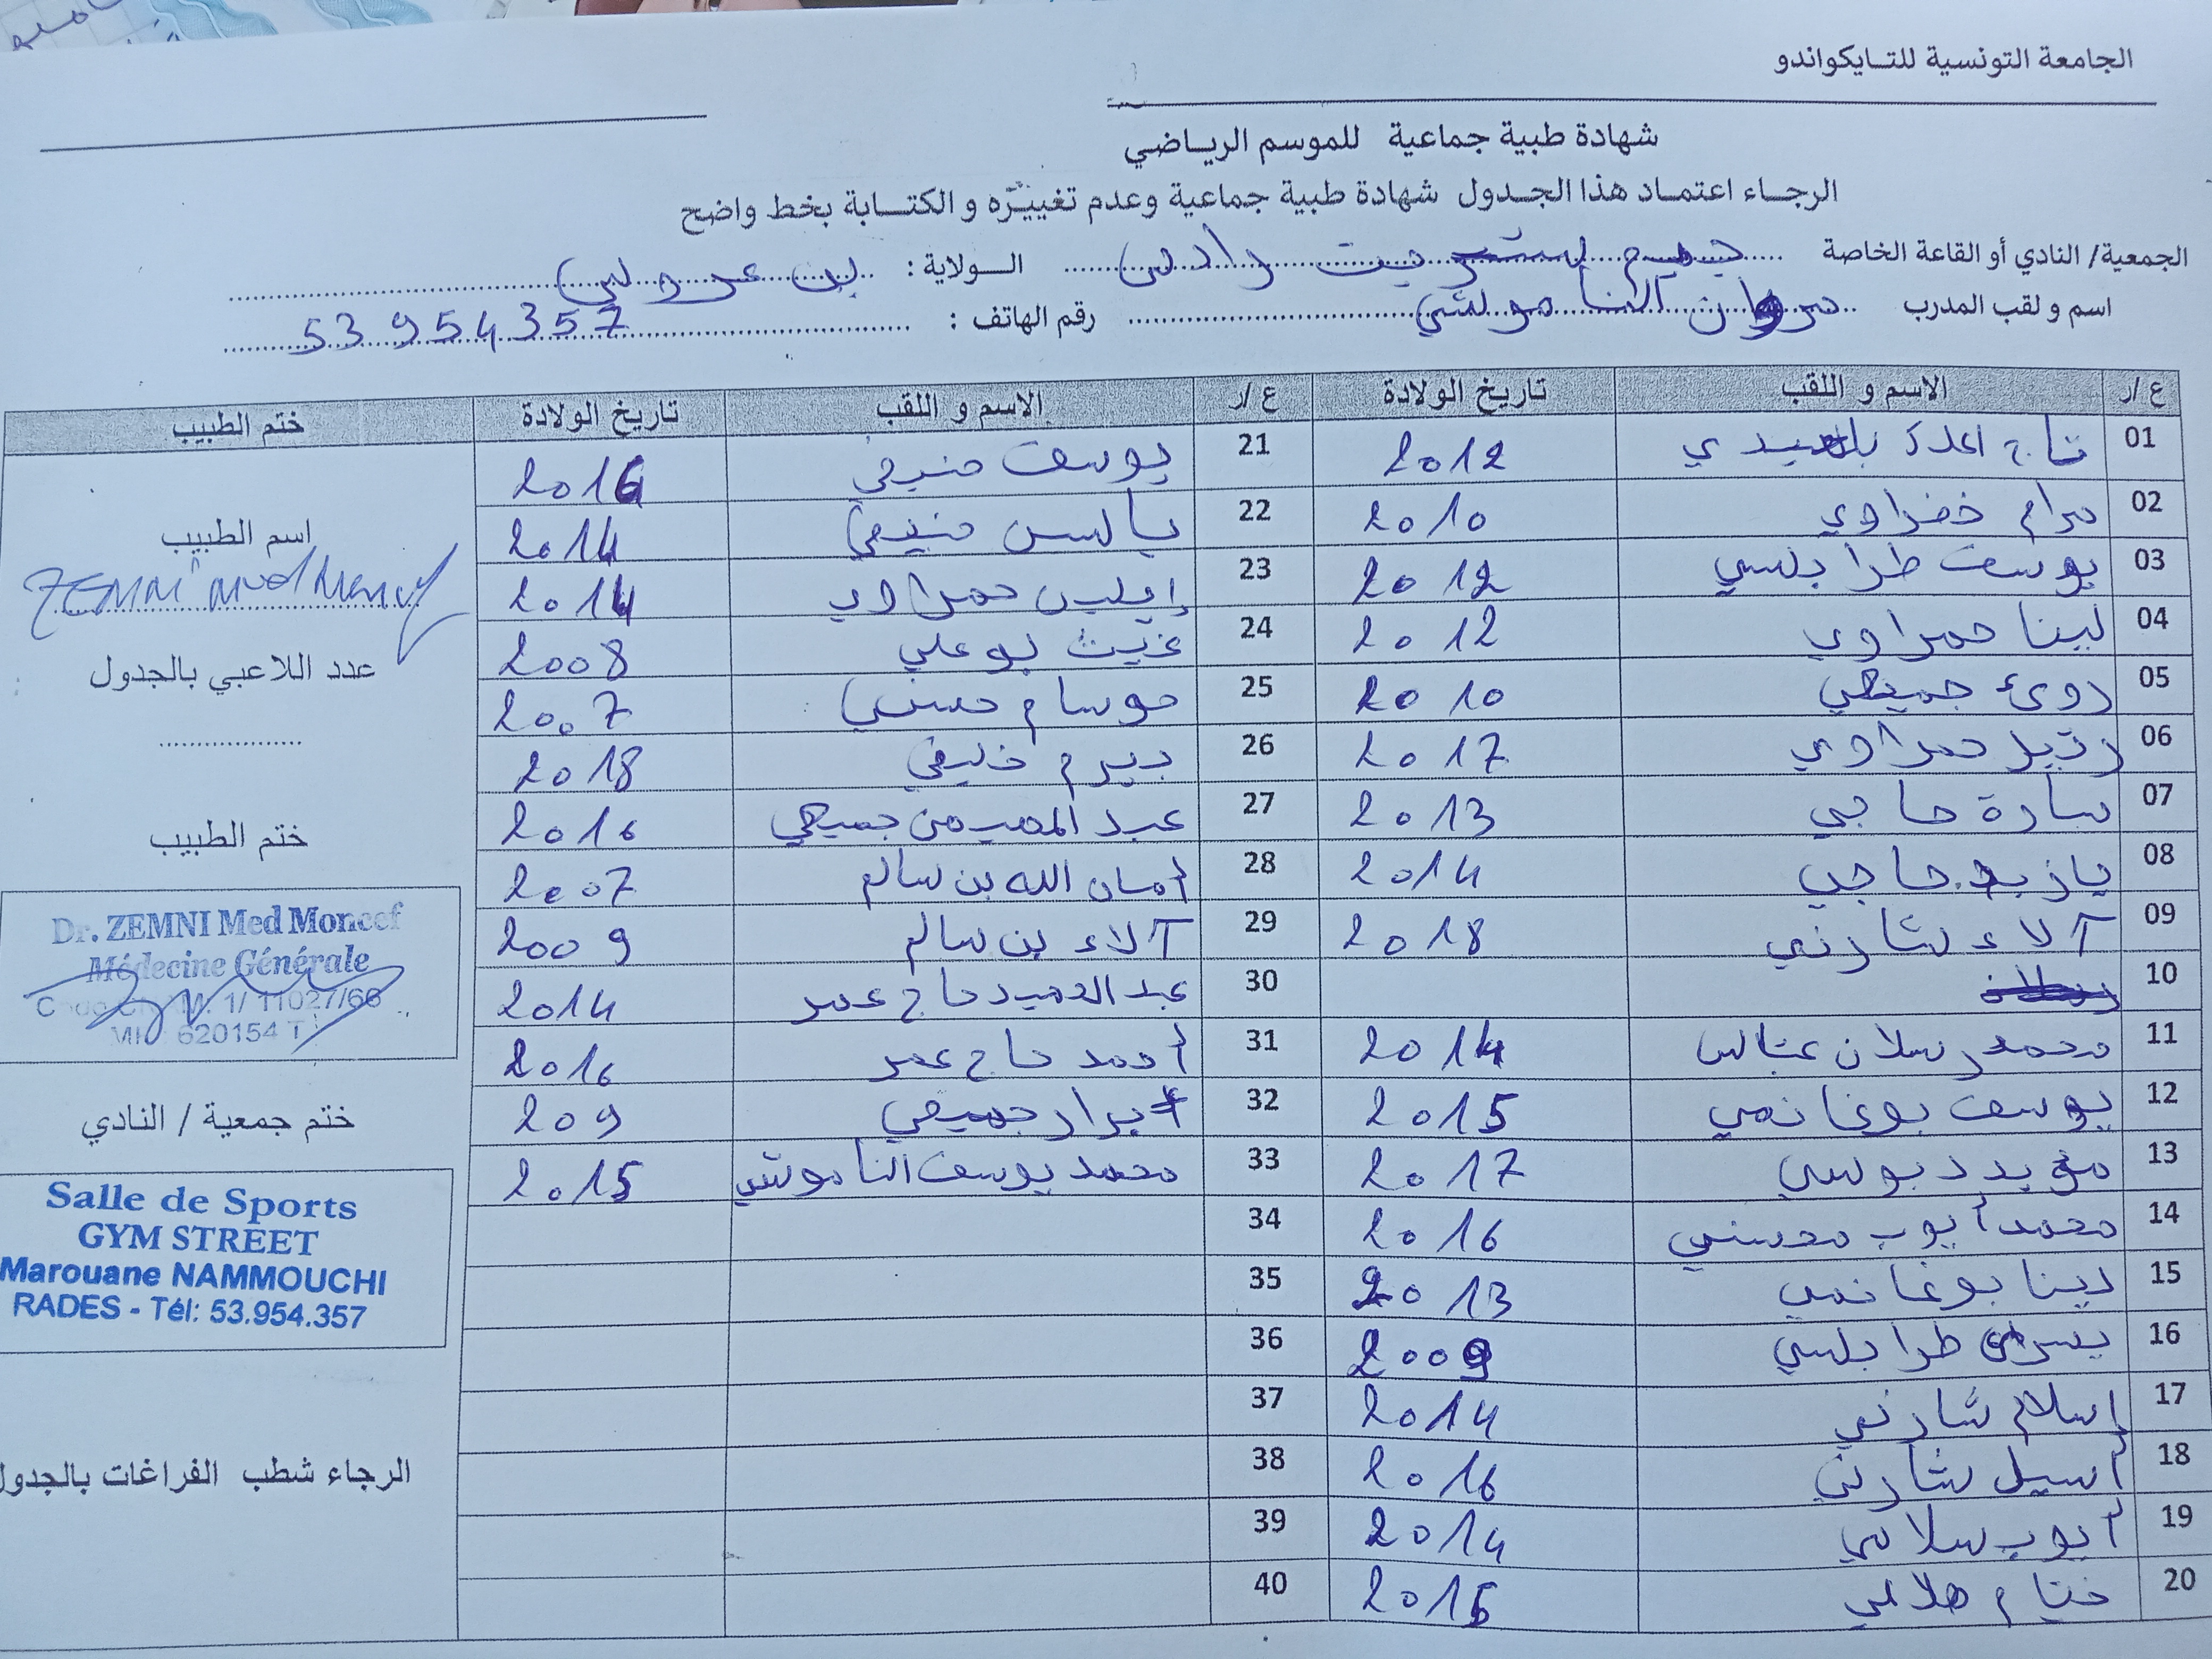 الجامعة التونسية للتايكواندو
شهادة طبية جماعية للموسم الرياضي
الرجاء اعتماد هذا الجدول شهادة طبية جماعية وعدم تغييره و الكتابة بخط واضح
الجمعية/ النادي أو القاعة الخاصة جيم ستريت رادس الولاية : بن عروس
اسم و لقب المدرب مروان الناموشي رقم الهاتف : 53 954 357
ع /ر الاسم و اللقب تاريخ الولادة ع /ر الاسم و اللقب تاريخ الولادة ختم الطبيب
01 تاج 2012 21 يوسف 2016
02 مرام خضراوي 2010 22 ياسين 2014
03 يوسف طرابلسي 2012 23 إيلين حمراوي 2014
04 لينا حمراوي 2012 24 غيث بوعلي 2008
05 رؤى جميعي 2010 25 حوسام حسني 2007
06 حمراوي 2017 26 بيرم خليفي 2018
07 سارة حاجي 2013 27 عبد المهيمن جميعي 2016
08 يازيد حاجي 2014 28 أمان الله بن سالم 2007
09 آلاء شارني 2018 29 آلاء بن سالم 2009
10 30 عبد الحميد حاج عمر 2014
11 محمد رسلان عباس 2014 31 أحمد حاج عمر 2016
12 يوسف بوغانمي 2015 32 أبرار جميعي 209
13 مؤيد دبوسي 2017 33 محمد يوسف الناموشي 2015
14 محمد أيوب محسني 2016 34
15 لينا بوغانمي 2013 35
16 يسرى طرابلسي 2009 36
17 إسلام شارني 2014 37
18 أسيل شارني 2016 38
19 أيوب سلامي 2014 39
20 ختام هلالي 2015 40
اسم الطبيب
ZEMNI Med Moncef
عدد اللاعبي بالجدول
ختم الطبيب
Dr. ZEMNI Med Moncef
Médecine Générale
1/ 11027/66
620154 T
ختم جمعية / النادي
Salle de Sports
GYM STREET
Marouane NAMMOUCHI
RADES - Tél: 53.954.357
الرجاء شطب الفراغات بالجدول